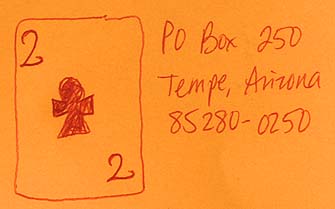 2
2
PO Box 250
Tempe, Arizona
85280-0250